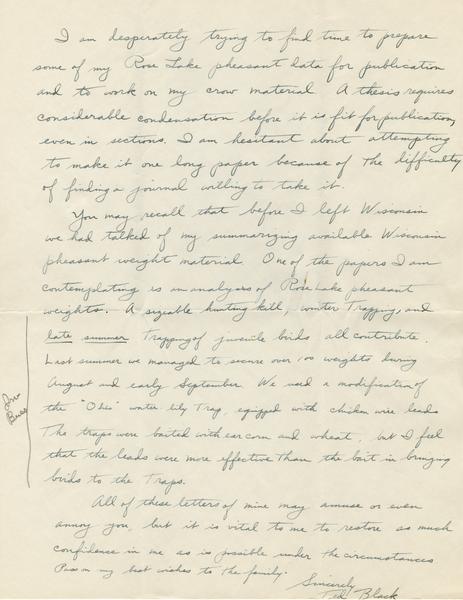 I am desperately trying to find time to prepare
some of my Rose Lake pheasant data for publication
and to work on my crow material. A thesis requires
considerable condensation before it is fit for publication,
even in sections. I am hesitant about attempting
to make it one long paper because of the difficulty
of finding a journal willing to take it.
You may recall that before I left Wisconsin
we had talked of my summarizing available Wisconsin
pheasant weight material. One of the papers I am
contemplating is an analysis of Rose Lake pheasant
weights. A sizeable hunting kill, winter Trapping, and
late summer Trapping of juvenile birds, all contribute.
Last summer we managed to secure over 100 weights during
August and early September. We used a modification of
the "Ohio" water lily Trap, eqipped with chicken wire leads
The traps were baited with ear corn and wheat, but I feel
that the leads were more effective than the bait in bringing
birds to the Traps.
All of these letters of mine may amuse or even
annoy you, but it is vital to me to restore as much
confidence in me as is possible under the circumstances
Pass on my best wishes to the family.
Sincerely
Ted Black